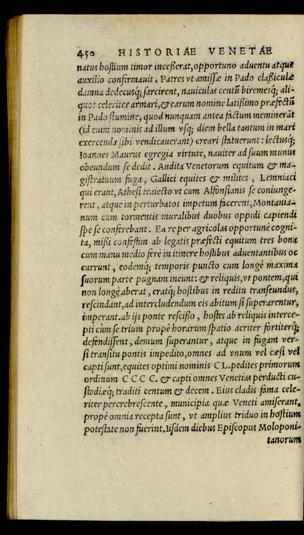 450 HISTORIAE VENETAE
natus hostium timor incesserat, opportuno aduentu atque
auxilio confirmauit. Patres vt amissæ in Pado classiculæ
damna dedecusq; sarcirent, nauiculas centũ biremesq; ali-
quot celeriter armari, & earum nomine latissimo præfectũ
in Pado flumine, quod nunquam antea factum meminerãt
(id enim nominis ad illum vsq; diem bella tantum in mari
exercenda sibi vendicauerant) creari statuerunt: lectusq;
Ioannes Maurus egregia virtute, nauiter ad suum munus
obeundum se dedit. Audita Venetorum equitum & ma-
gistratuum fuga, Gallici equites & milites, Lemniaci
qui erant, Athesi traiecto vt cum Alfonsianis se coniunge-
rent, atque in perturbatos impetum facerent, Montania-
num cum tormentis muralibus duobus oppidi capiendi
spe se conferebant. Ea re per agricolas opportune cogni-
ta, missi confestim ab legatis præfecti equitum tres bona
cum manu medio fere in itinere hostibus aduentantibus oc
currunt, eodemq; temporis puncto cum longè maxima
suorum parte pugnam ineunt: & reliquis, vt pontem, qui
non longè aberat, eratq; hostibus in reditu transeundus,
rescindant, ad intercludendum eis abitum si superarentur,
imperant. ab ijs ponte rescisso, hostes ab reliquis interce-
pti cùm se trium propè horarum spatio acriter fortiterq;
defendissent, demum superantur, atque in fugam ver-
si transitu pontis impedito, omnes ad vnum vel cæsi vel
capti sunt, equites optimi nominis CL. pedites primorum
ordinum CCCC. & capti omnes Venetias perducti cu-
stodiæq; traditi centum & decem. Eius cladis fama cele-
riter percrebrescente, municipia quæ Veneti amiserant,
propè omnia recepta sunt, vt amplius triduo in hostium
potestate non fuerint. Iisdem diebus Episcopus Moloponi-
tanorum